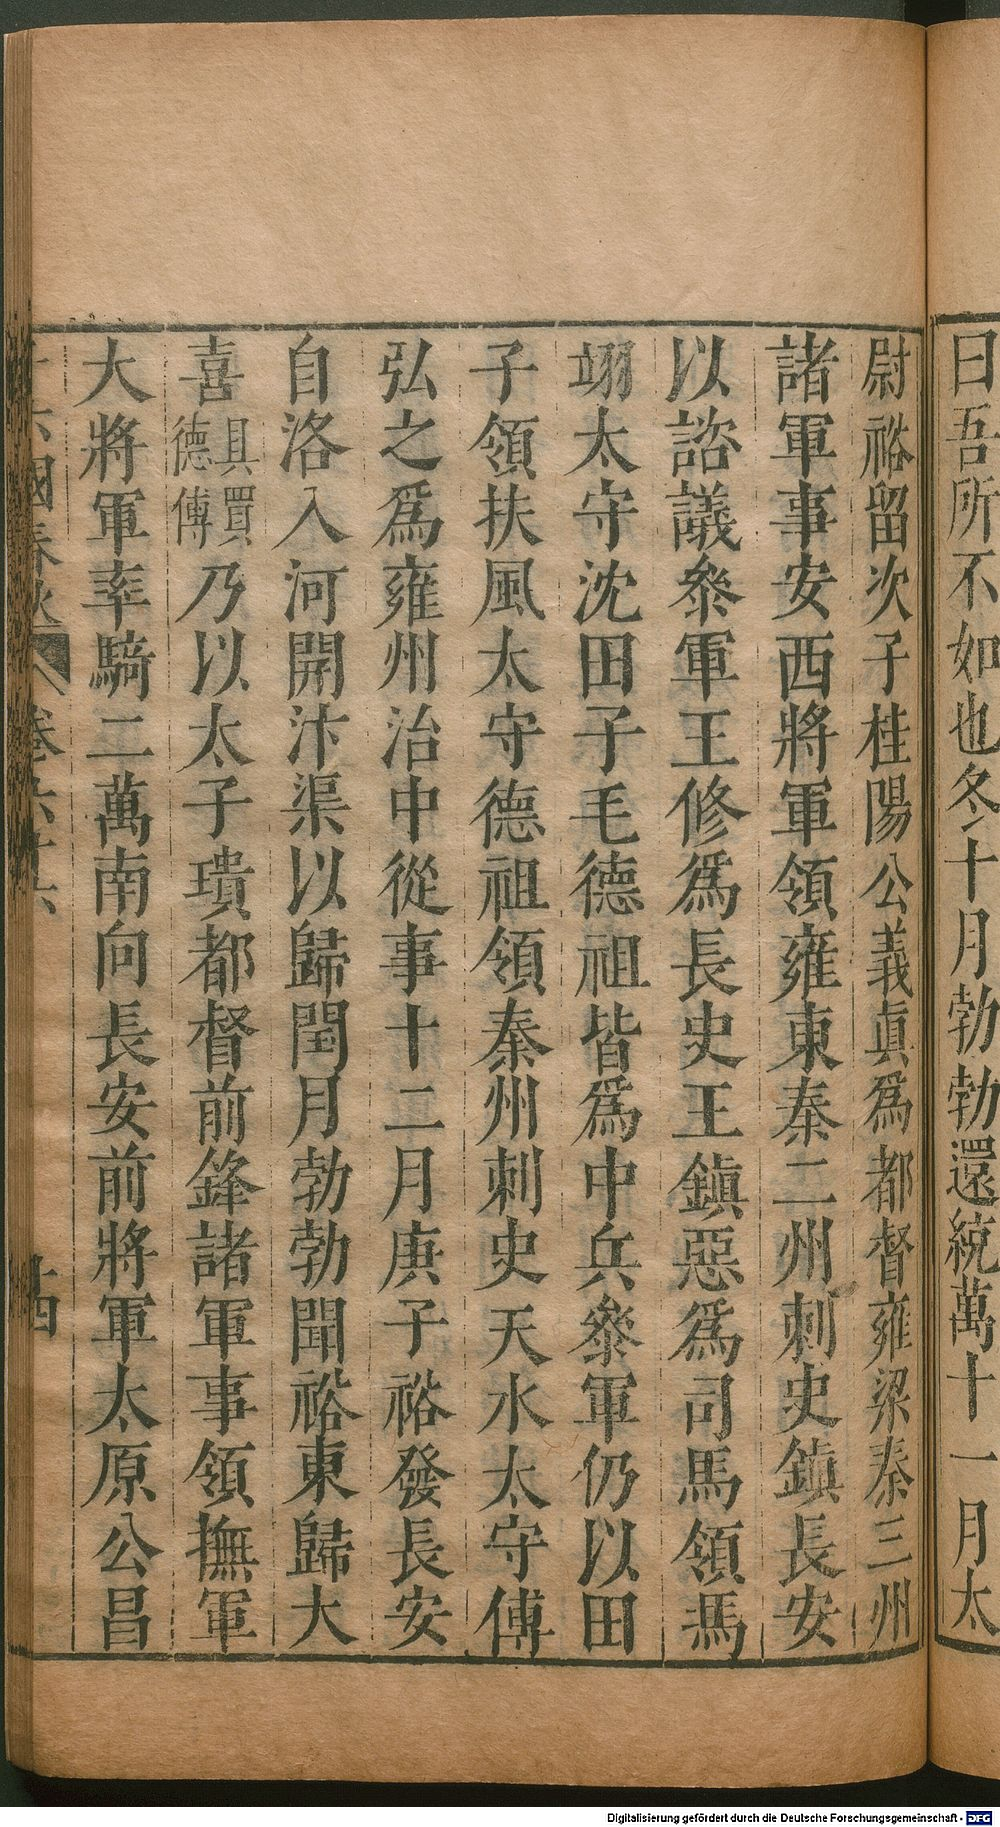 曰吾所不如也冬十月勃勃還統萬十一月太
尉裕留次子桂陽公義眞爲都督雍梁秦三州
諸軍事安西將軍領雍東秦二州刺史鎮長安
以諮議叅軍王修爲長史王鎮惡爲司馬領馮
翊太守沈田子毛德祖皆爲中兵叅軍仍以田
子領扶風太守德祖領秦州刺史天水太守傅
弘之爲雍州治中從事十二月庚子裕發長安
自洛入河開汴渠以歸閏月勃勃聞裕東歸大
喜具買德傳乃以太子璝都督前鋒諸軍事領撫軍
大將軍率騎二萬南向長安前將軍太原公昌
十六國春秋 卷六十六 十四
Digitalisierung gefördert durch die Deutsche Forschungsgemeinschaft - DFG